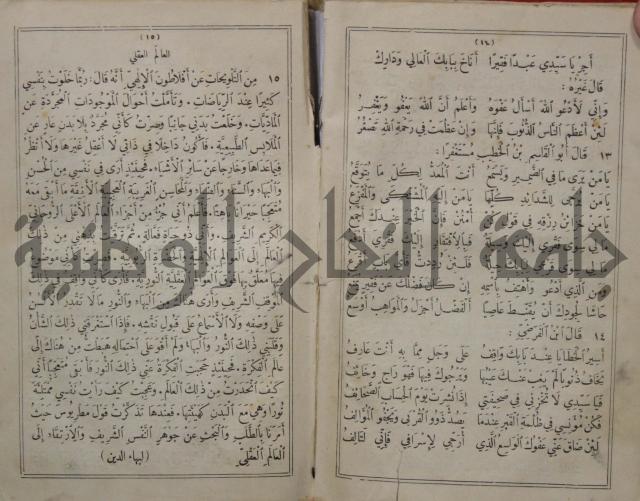 (١٤)
أجر يا سيدي عبدا فقيرا أناخ ببابك العالي ودارك
قال غيره :
وإني لأدعو الله أسأل عفوه وأعلم أن الله يعفو ويغفر
لئن أعظم الناس الذنوب فإنها وإن عظمت في رحمة الله تصغر
١٣ قال أبو القاسم بن الخطيب مستغفرا :
يا من يرى ما في الضمير ويسمع أنت المعد لكل ما يتوقع
يا من يرجى للشدائد كلها يا من إليه المشتكى والمفزع
يا من خزائن رزقه في قول كن أمنن فإن الخير عندك أجمع
مالي سوى فقري إليك وسيلة فبالافتقار إليك فقري
مالي سوى قرعي لبابك حيلة فلئن رددت فأي باب أقرع
ومن الذي أدعو وأهتف باسمه إن كان فضلك عن فقير
حاشا لجودك أن يقنط عاصيا الفضل أجزل والمواهب أوسع
١٤ قال ابن الفرضي :
أسير الخطايا عند بابك واقف على وجل مما به أنت عارف
يخاف ذنوبا لم يغب عنك غيبها ويرجوك فيها فهو راج وخائف
فيا سيدي لا تخزني في صحيفتي إذا نشرت يوم الحساب الصحائف
فكن مؤنسي في ظلمة القبر عندما يصد ذوو القربى ويجفو الموالف
لئن ضاق عني عفوك الواسع الذي أرجي لإسرافي فإني لتالف
(١٥)
العالم العقلي
١٥ من التلويحات عن أفلاطون الإلهي أنه قال: ربما خلوت بنفسي
كثيرا عند الرياضات. وتأملت أحوال الموجودات المجردة عن
الماديات. وخلعت بدني جانبا وصرت كأني مجرد بلا بدن عار عن
الملابس الطبيعية. فأكون داخلا في ذاتي لا أتعقل غيرها ولا أنظر
فيما عداها وخارجا عن سائر الأشياء. فحينئذ أرى في نفسي من الحسن
والبهاء والسناء والضياء والمحاسن الغريبة العجيبة الأنيقة ما أبقى معه
متعجبا حيرانا باهتا. فأعلم أني جزء من أجزاء العالم الأعلى الروحاني
الكريم الشريف. وأني ذو حياة فعالة. ثم ترقيت بذهني من ذلك
العالم إلى العوالم الإلهية
العقلية النورية. فأرى كأني واقف في ذلك
الموقف الشريف وأرى هناك من البهاء والنور ما لا تقدر الألسن
على وصفه ولا الأسماع على قبول نقشه. فإذا استغرقني ذلك الشأن
وغلبني ذلك النور والبهاء ولم أقو على احتماله هبطت من هناك إلى
عالم الفكرة. فحينئذ حجبت الفكرة عني ذلك النور فأبقى متعجبا أني
كيف انحدرت من ذلك العالم. وعجبت كيف رأيت نفسي ممتلئة
نورا وهي مع البدن كهيئتها. فعندها تذكرت قول مطريوس حيث
أمرنا بالطلب والبحث عن جوهر النفس الشريف والارتقاء إلى
العالم العقلي (لبهاء الدين)
جامعة النجاح الوطنية